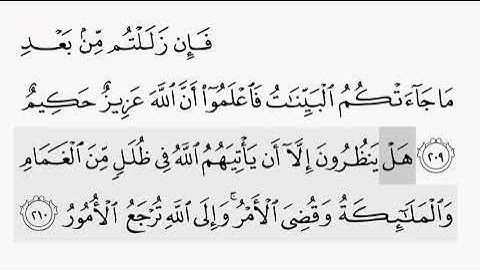 فَإِن زَلَلْتُم مِّنۢ بَعْدِ
مَا جَآءَتْكُمُ الْبَيِّنَاتُ فَاعْلَمُوٓا۟ أَنَّ اللَّهَ عَزِيزٌ حَكِيمٌ
٢٠٩ هَلْ يَنظُرُونَ إِلَّآ أَن يَأْتِيَهُمُ اللَّهُ فِى ظُلَلٍ مِّنَ الْغَمَامِ
وَالْمَلَٰٓئِكَةُ وَقُضِىَ الْأَمْرُ ۚ وَإِلَى اللَّهِ تُرْجَعُ الْأُمُورُ ٢١٠